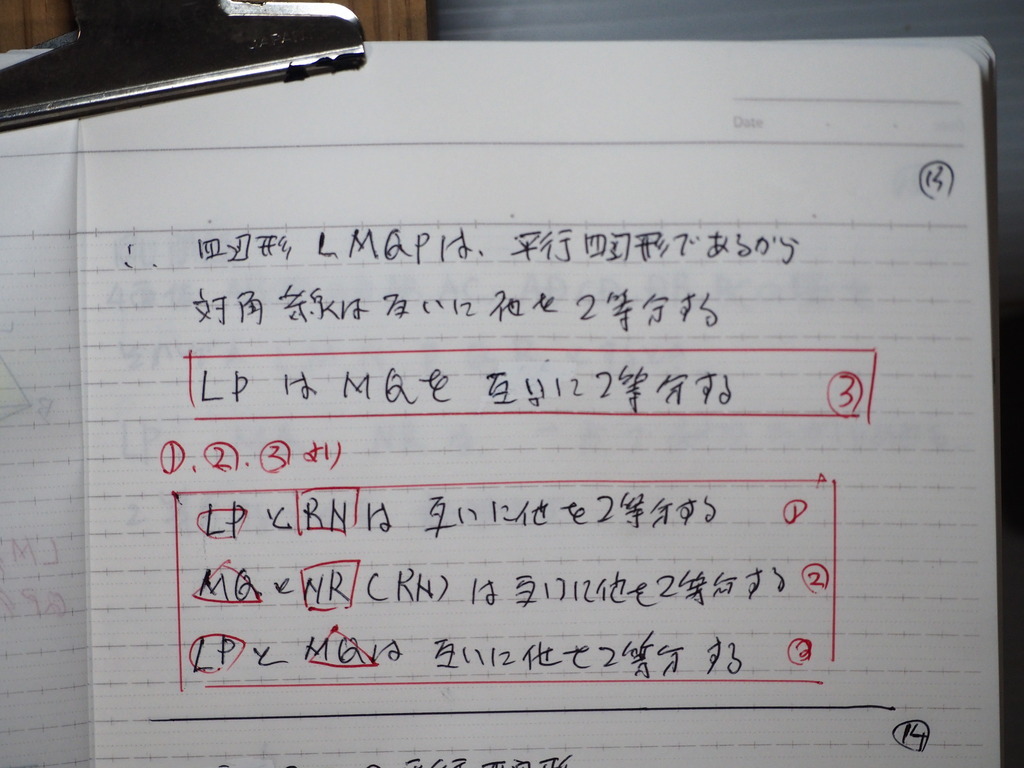 JAPAN
Date
⑬
∴ 四辺形 LMQPは、平行四辺形であるから
対角線は互いに他を2等分する
LP は MQを 互いに2等分する ③
①.②.③より
LPとRNは 互いに他を2等分する ①
MQとNR(RN)は互いに他を2等分する ②
LPとMQは 互いに他を2等分する ③
⑭
平行四辺形